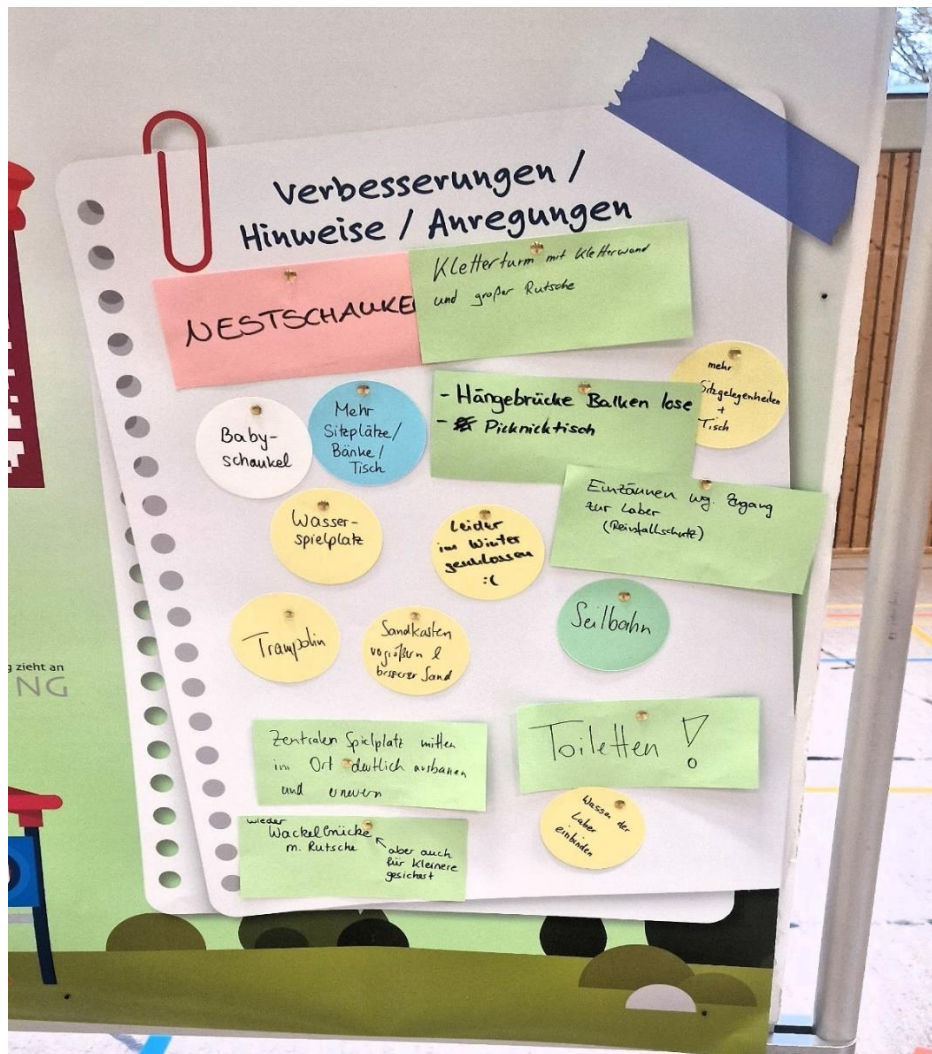 Verbesserungen /
Hinweise / Anregungen
NESTSCHAUKEL
Kletterturm mit Kletterwand
und großer Rutsche
mehr
Sitzgelegenheiten
+
Tisch
Baby-
schaukel
Mehr
Sitzplätze/
Bänke/
Tisch
- Hängebrücke Balken lose
- Picknicktisch
Einzäunen wg. Zugang
zur Laber
(Reinfallschutz)
Wasser-
spielplatz
Leider
im Winter
geschlossen
:(
Seilbahn
Trampolin
Sandkasten
vergrößern &
besserer Sand
g zieht an
NG
Zentralen Spielplatz mitten
im Ort deutlich ausbauen
und erneuern
Toiletten !
wieder
Wackelbrücke
m. Rutsche
aber auch
für Kleinere
gesichert
Wasser der
Laber
einbinden